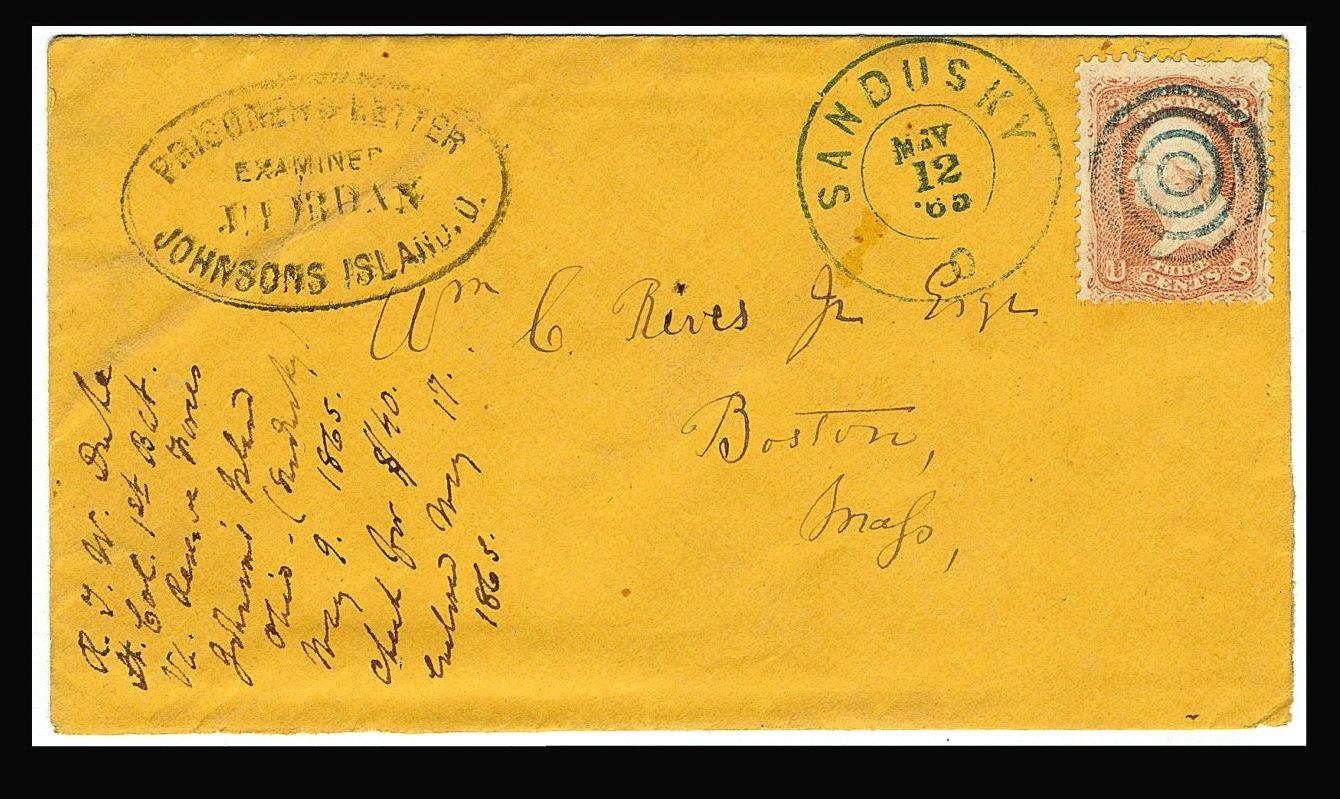 PRISONER'S LETTER
EXAMINED
JOHNSONS ISLAND. O.
SANDUSKY
MAY
12
'65
O
3 3
U THREE S
CENTS
Wm C. Rives Jr Esqr
Boston,
Mass,
R. T. W. Duke
Lt. Col. 1st Bat.
Va. Reserve Forces
Johnson's Island
Ohio - (Sandusky)
May 9. 1865.
Check for $40.
Enclosed May 17.
1865.